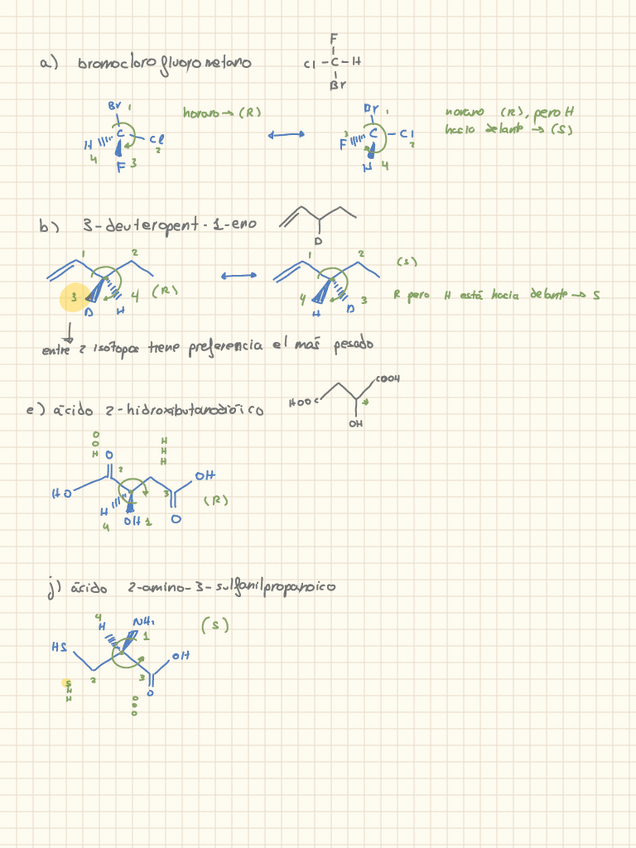 a) bromocloro fluoro metano
F
Cl - C - H
Br
Br 1
H 4
C
Cl 2
F 3
horario → (R)
Br 1
3 F
C - Cl 2
H 4
horario (R), pero H
hacia delante → (S)
b) 3-deuteropent-1-eno
D
1 2
3 D
H 4
(R)
1 2
4 H
D 3
(S)
R pero H está hacia delante → S
entre 2 isótopos tiene preferencia el más pesado
e) ácido 2-hidroxibutanodióico
HOOC
COOH
*
OH
O
O
H
H
H
H
O
2
HO
OH
3
H
4
OH 1
O
(R)
j) ácido 2-amino-3-sulfanilpropanoico
4
H
NH₂
1
(S)
HS
OH
2
3
O
S
H
H
O
O
O